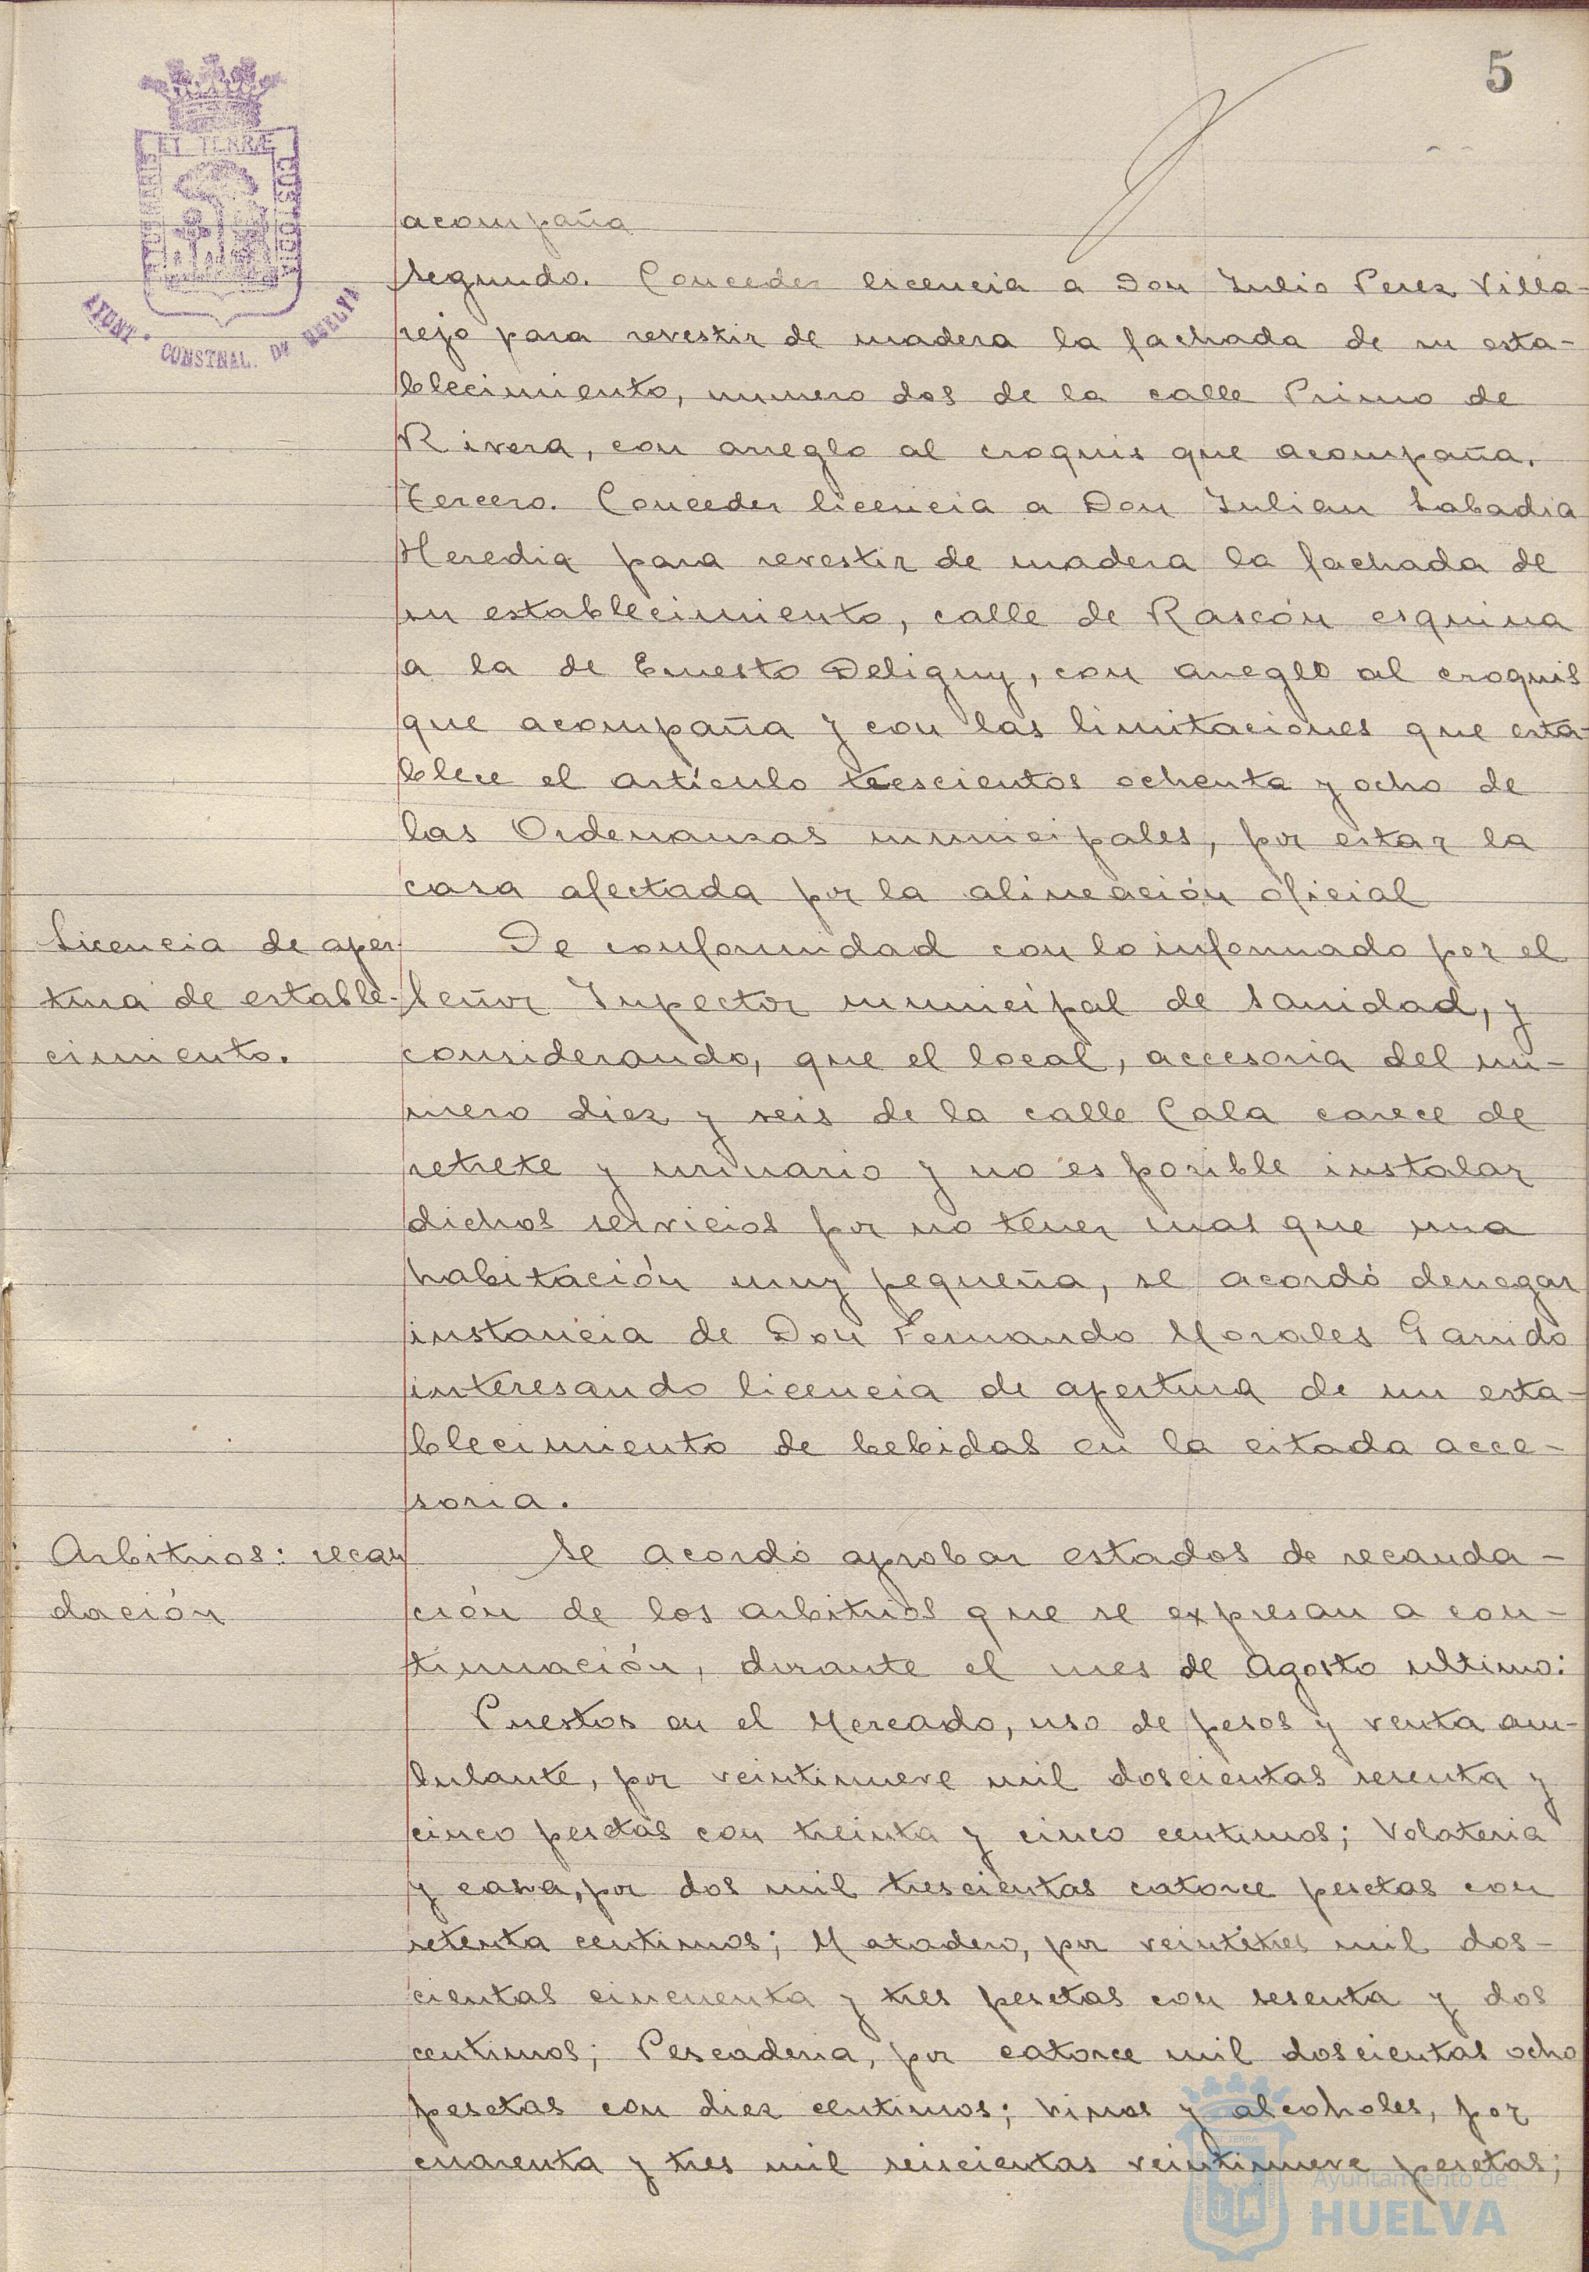 5
PORTUS MARIS ET TERRÆ CUSTODIA
AYUNT. CONSTNAL. DE HUELVA
acompaña
Segundo. Conceder licencia a Don Julio Perez Villa-
rejo para revestir de madera la fachada de su esta-
blecimiento, numero dos de la calle Primo de
Rivera, con arreglo al croquis que acompaña.
Tercero. Conceder licencia a Don Julian Sabadia
Heredia para revestir de madera la fachada de
su establecimiento, calle de Rascón esquina
a la de Ernesto Deligny, con areglo al croquis
que acompaña y con las limitaciones que esta-
blece el artículo trescientos ochenta y ocho de
las Ordenanzas municipales, por estar la
casa afectada por la alineación oficial
Licencia de aper-
tura de estable-
cimiento.
De conformidad con lo informado por el
Señor Inpector municipal de Sanidad, y
considerando, que el local, accesoria del nu-
mero diez y seis de la calle Cala carece de
retrete y urinario y no es posible instalar
dichos servicios por no tener mas que una
habitación muy pequeña, se acordó denegar
instancia de Don Fernando Morales Garrido
interesando licencia de apertura de un esta-
blecimiento de bebidas en la citada acce-
soria.
Arbitrios: recau
dación
Se acordó aprobar estados de recauda-
ción de los arbitrios que se expresan a con-
tinuación, durante el mes de Agosto ultimo:
Puestos en el Mercado, uso de pesos y venta am-
bulante, por veintinueve mil doscientas sesenta y
cinco pesetas con treinta y cinco centimos; Volateria
y caza, por dos mil trescientas catorce pesetas con
setenta centimos; Matadero, por veintitres mil dos-
cientas cincuenta y tres pesetas con sesenta y dos
centimos; Pescaderia, por catorce mil doscientas ocho
pesetas con diez centimos; Vinos y alcoholes, por
cuarenta y tres mil seiscientas veintinueve pesetas;
Ayuntamiento de
HUELVA